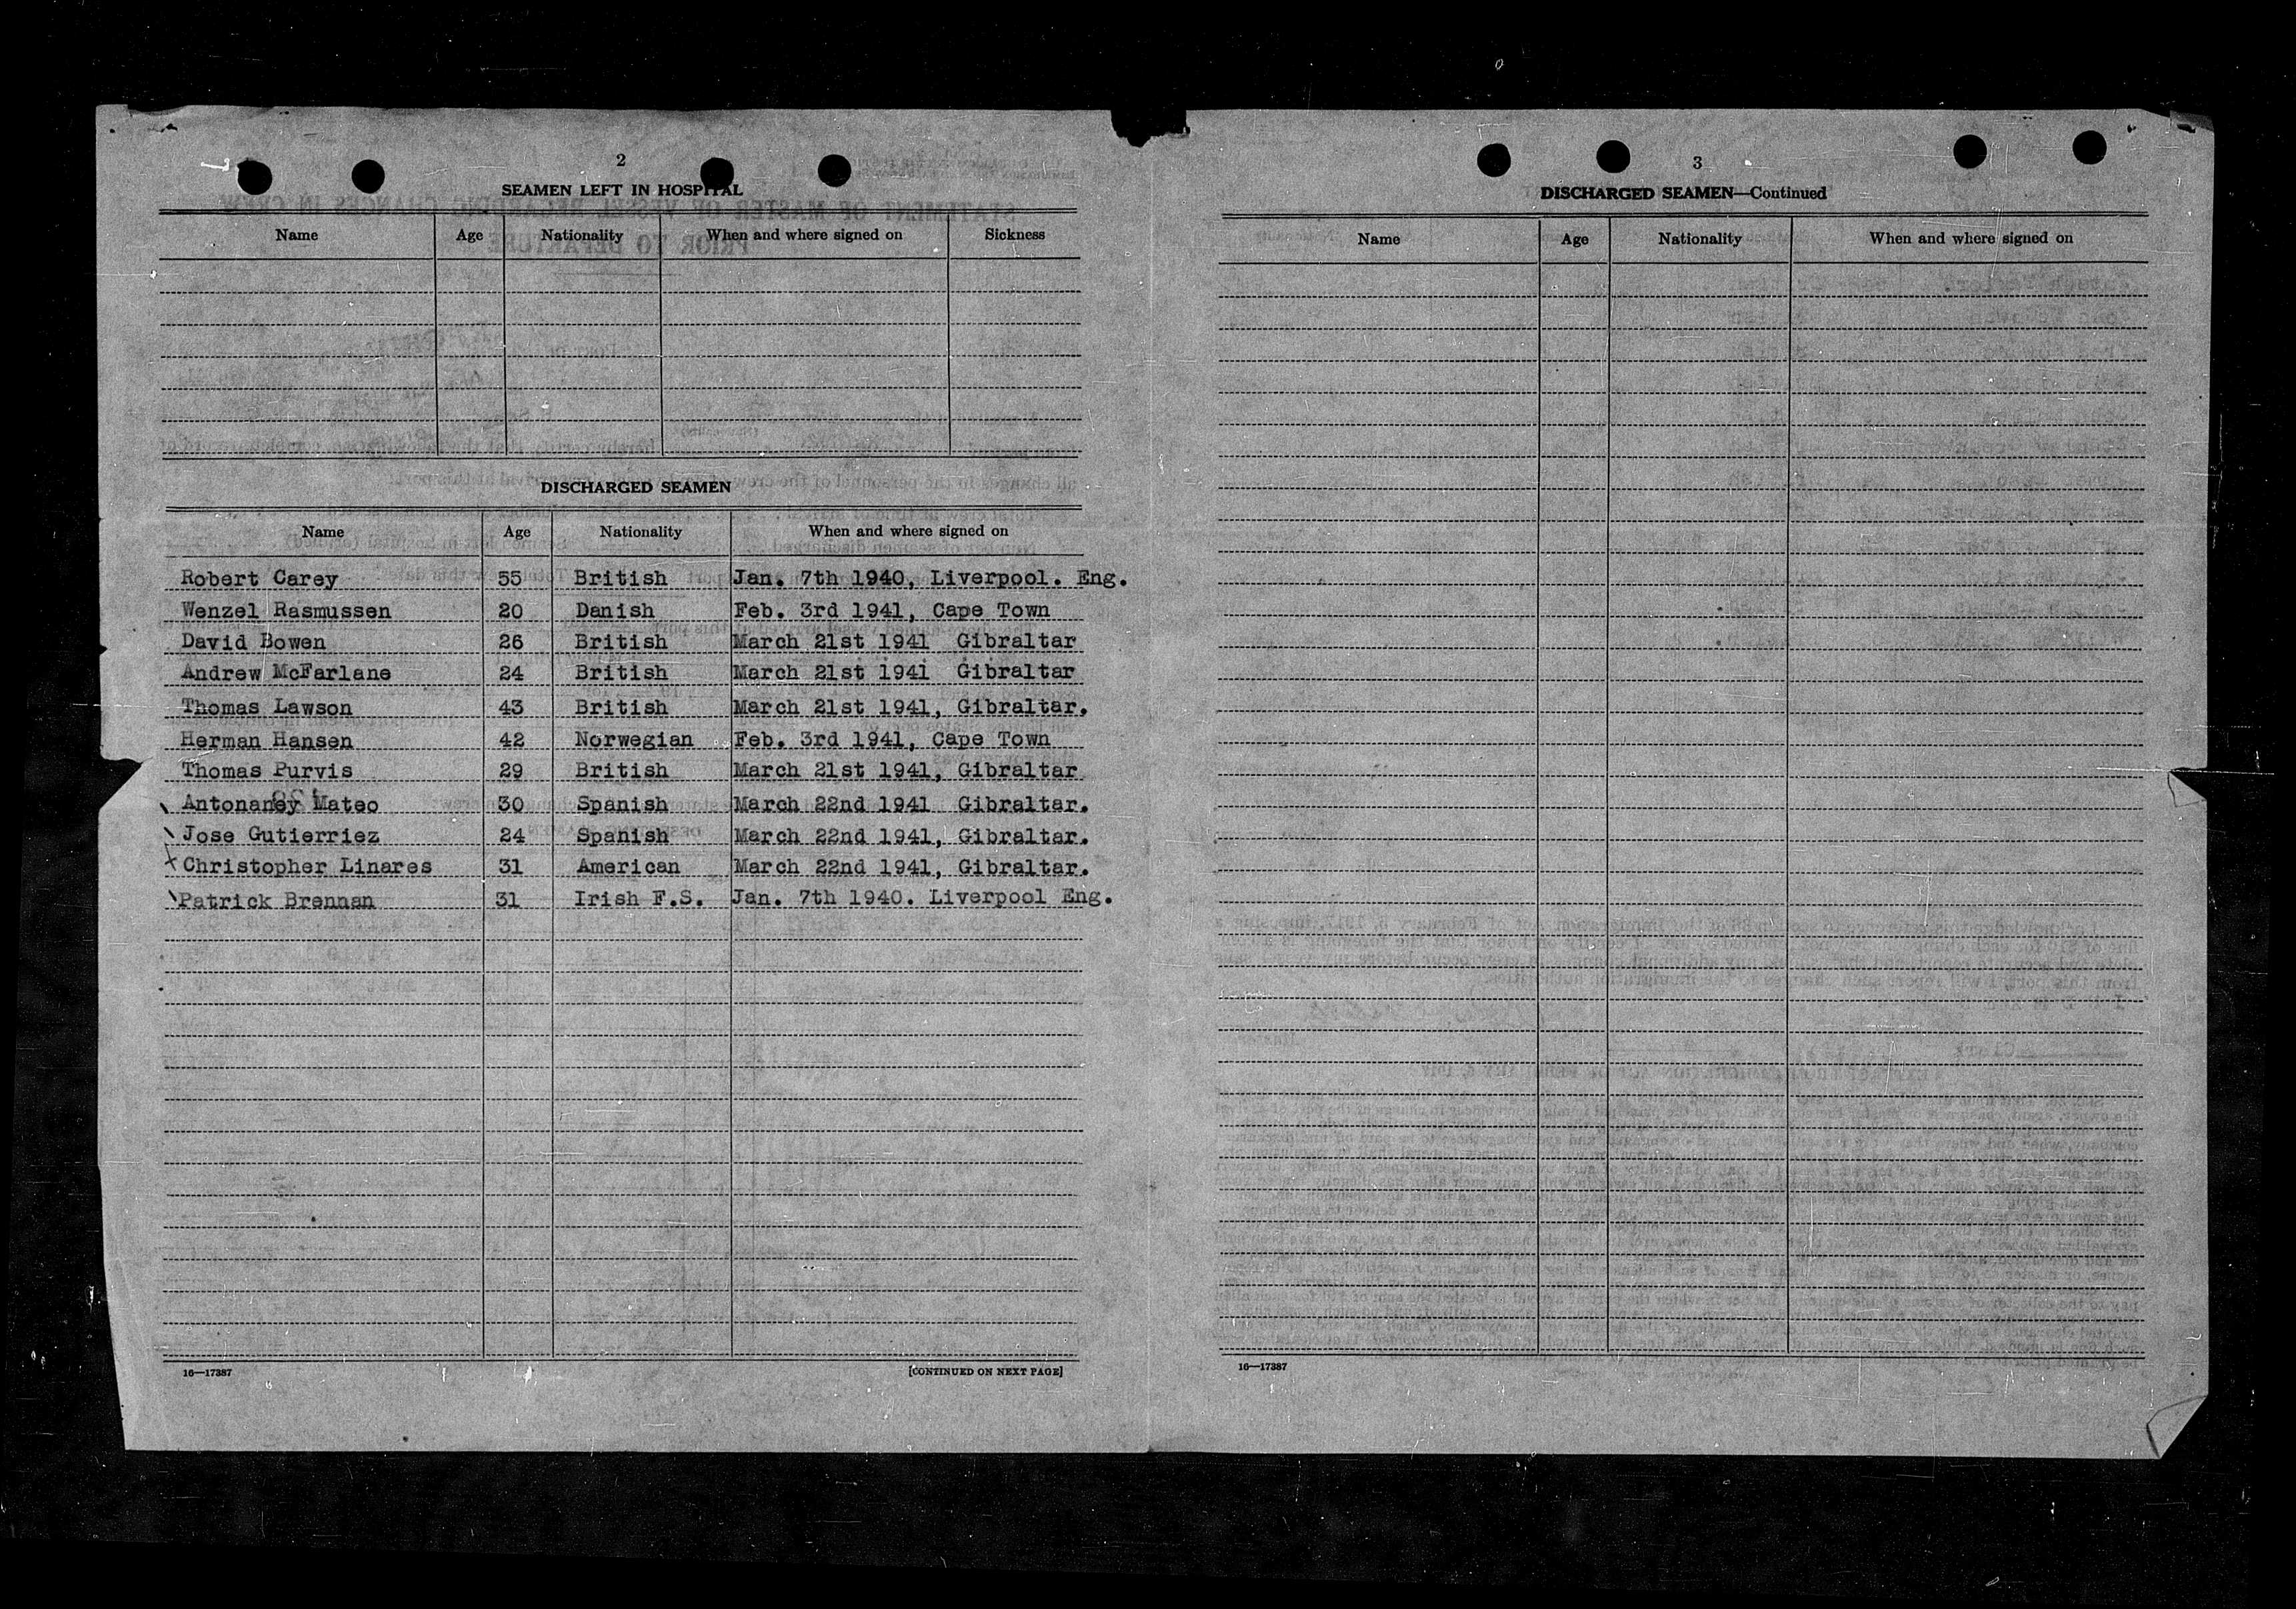 2
SEAMEN LEFT IN HOSPITAL
Name Age Nationality When and where signed on Sickness
DISCHARGED SEAMEN
Name Age Nationality When and where signed on
Robert Carey 55 British Jan. 7th 1940, Liverpool. Eng.
Wenzel Rasmussen 20 Danish Feb. 3rd 1941, Cape Town
David Bowen 26 British March 21st 1941 Gibraltar
Andrew McFarlane 24 British March 21st 1941 Gibraltar
Thomas Lawson 43 British March 21st 1941, Gibraltar.
Herman Hansen 42 Norwegian Feb. 3rd 1941, Cape Town
Thomas Purvis 29 British March 21st 1941, Gibraltar
Antonaney Mateo 30 Spanish March 22nd 1941 Gibraltar.
Jose Gutierriez 24 Spanish March 22nd 1941, Gibraltar.
Christopher Linares 31 American March 22nd 1941, Gibraltar.
Patrick Brennan 31 Irish F.S. Jan. 7th 1940. Liverpool Eng.
16—17387 [CONTINUED ON NEXT PAGE]
3
DISCHARGED SEAMEN—Continued
Name Age Nationality When and where signed on
16—17387